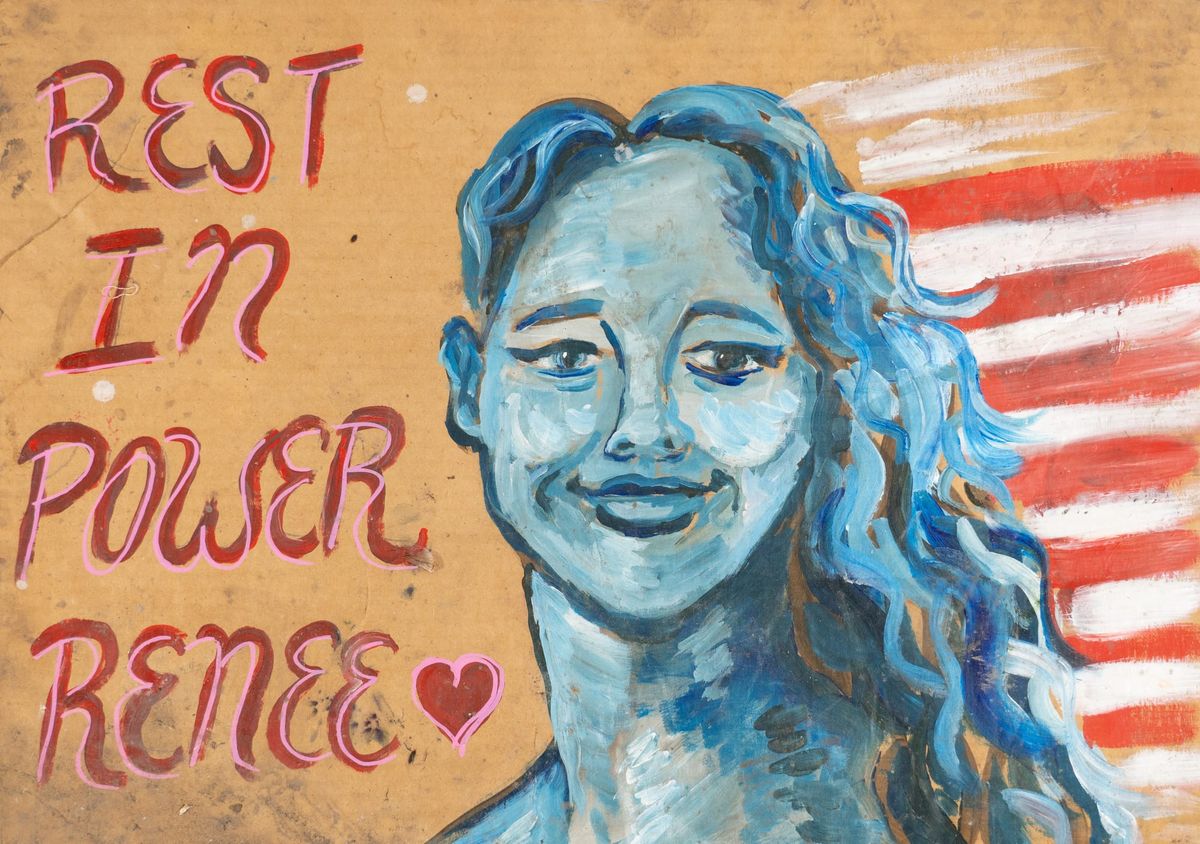 REST
IN
POWER,
RENEE ♥